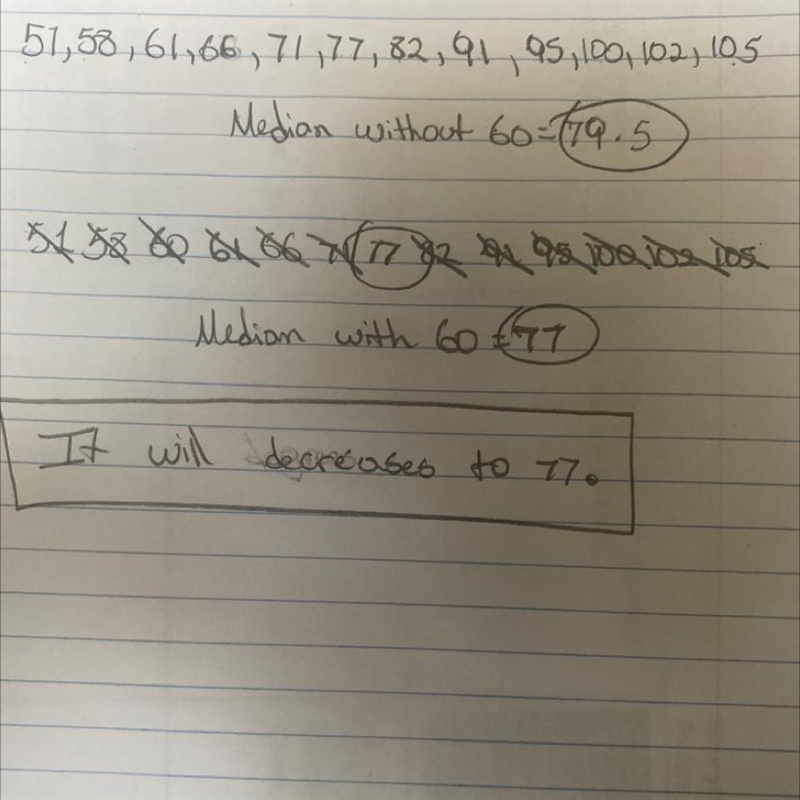 51, 58, 61, 66, 71, 77, 82, 91, 95, 100, 102, 105
Median without 60 = 79.5
51 58 60 61 66 71 77 82 91 95 100 102 105
Median with 60 = 77
It will decreases to 77.